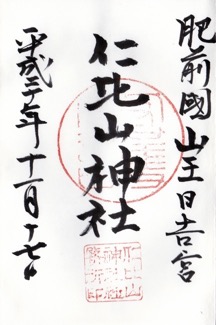 肥前國山王日吉宮
仁比山神社
平成二十七年十一月十七日